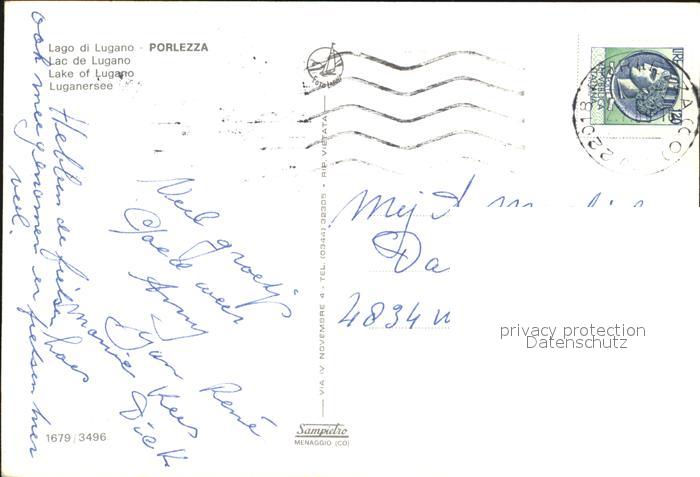 Lago di Lugano - PORLEZZA
Lac de Lugano
Lake of Lugano
Luganersee
Veel groetjes
Goede weer
Anny
Kees
Dick
René
Hebben de fietsen
ook meegenomen en fietsen hier
veel.
1679/3496
VIA IV NOVEMBRE 4 - TEL. (0344) 32305 - RIP. VIETATA
Sampietro
MENAGGIO (CO)
22018
(CO)
120
Mej
Da
4834
privacy protection
Datenschutz